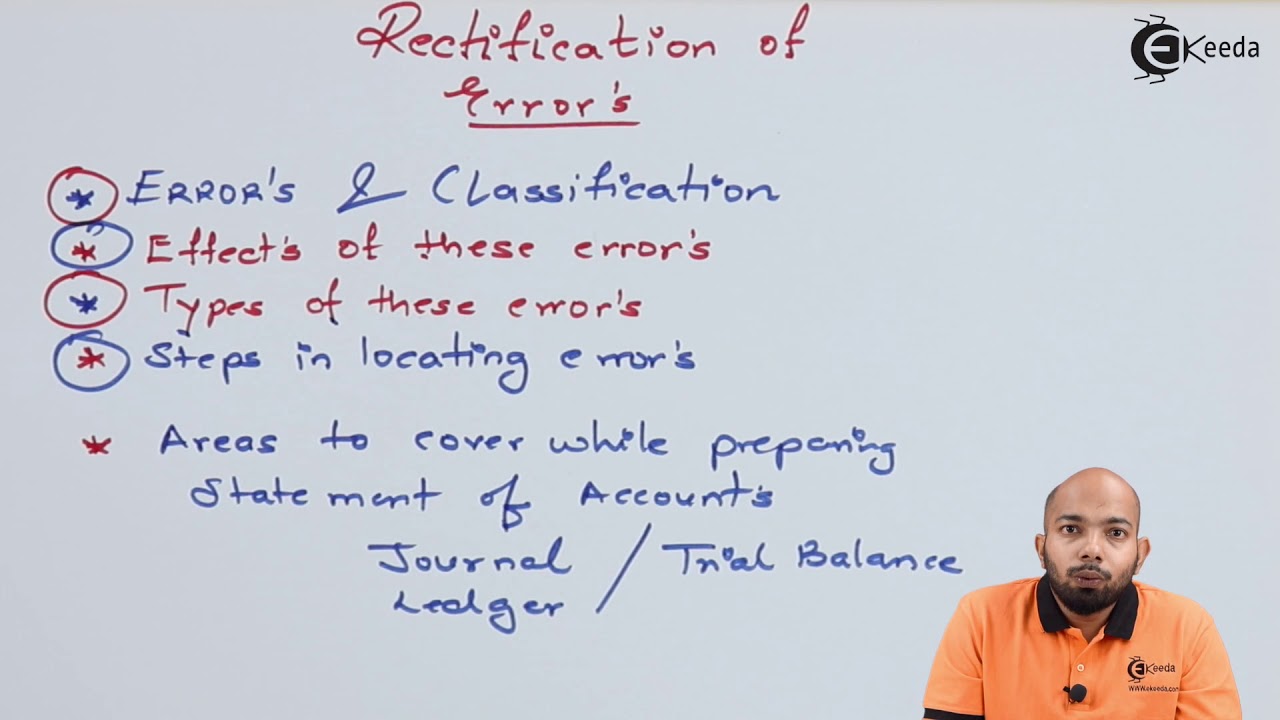 Rectification of
Error's
EKeeda
* ERROR'S & Classification
* Effect's of these error's
* Types of these error's
* Steps in locating error's
* Areas to cover while preparing
Statement of Account's
Journal / Trial Balance
Ledger
EKeeda
www.ekeeda.com